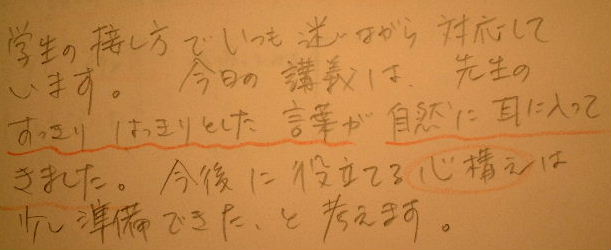 学生の接し方でいつも迷いながら対応して
います。 今日の講義は、先生の
すっきりはっきりとした言葉が自然に耳に入って
きました。今後に役立てる心構えは
少し準備できた、と考えます。